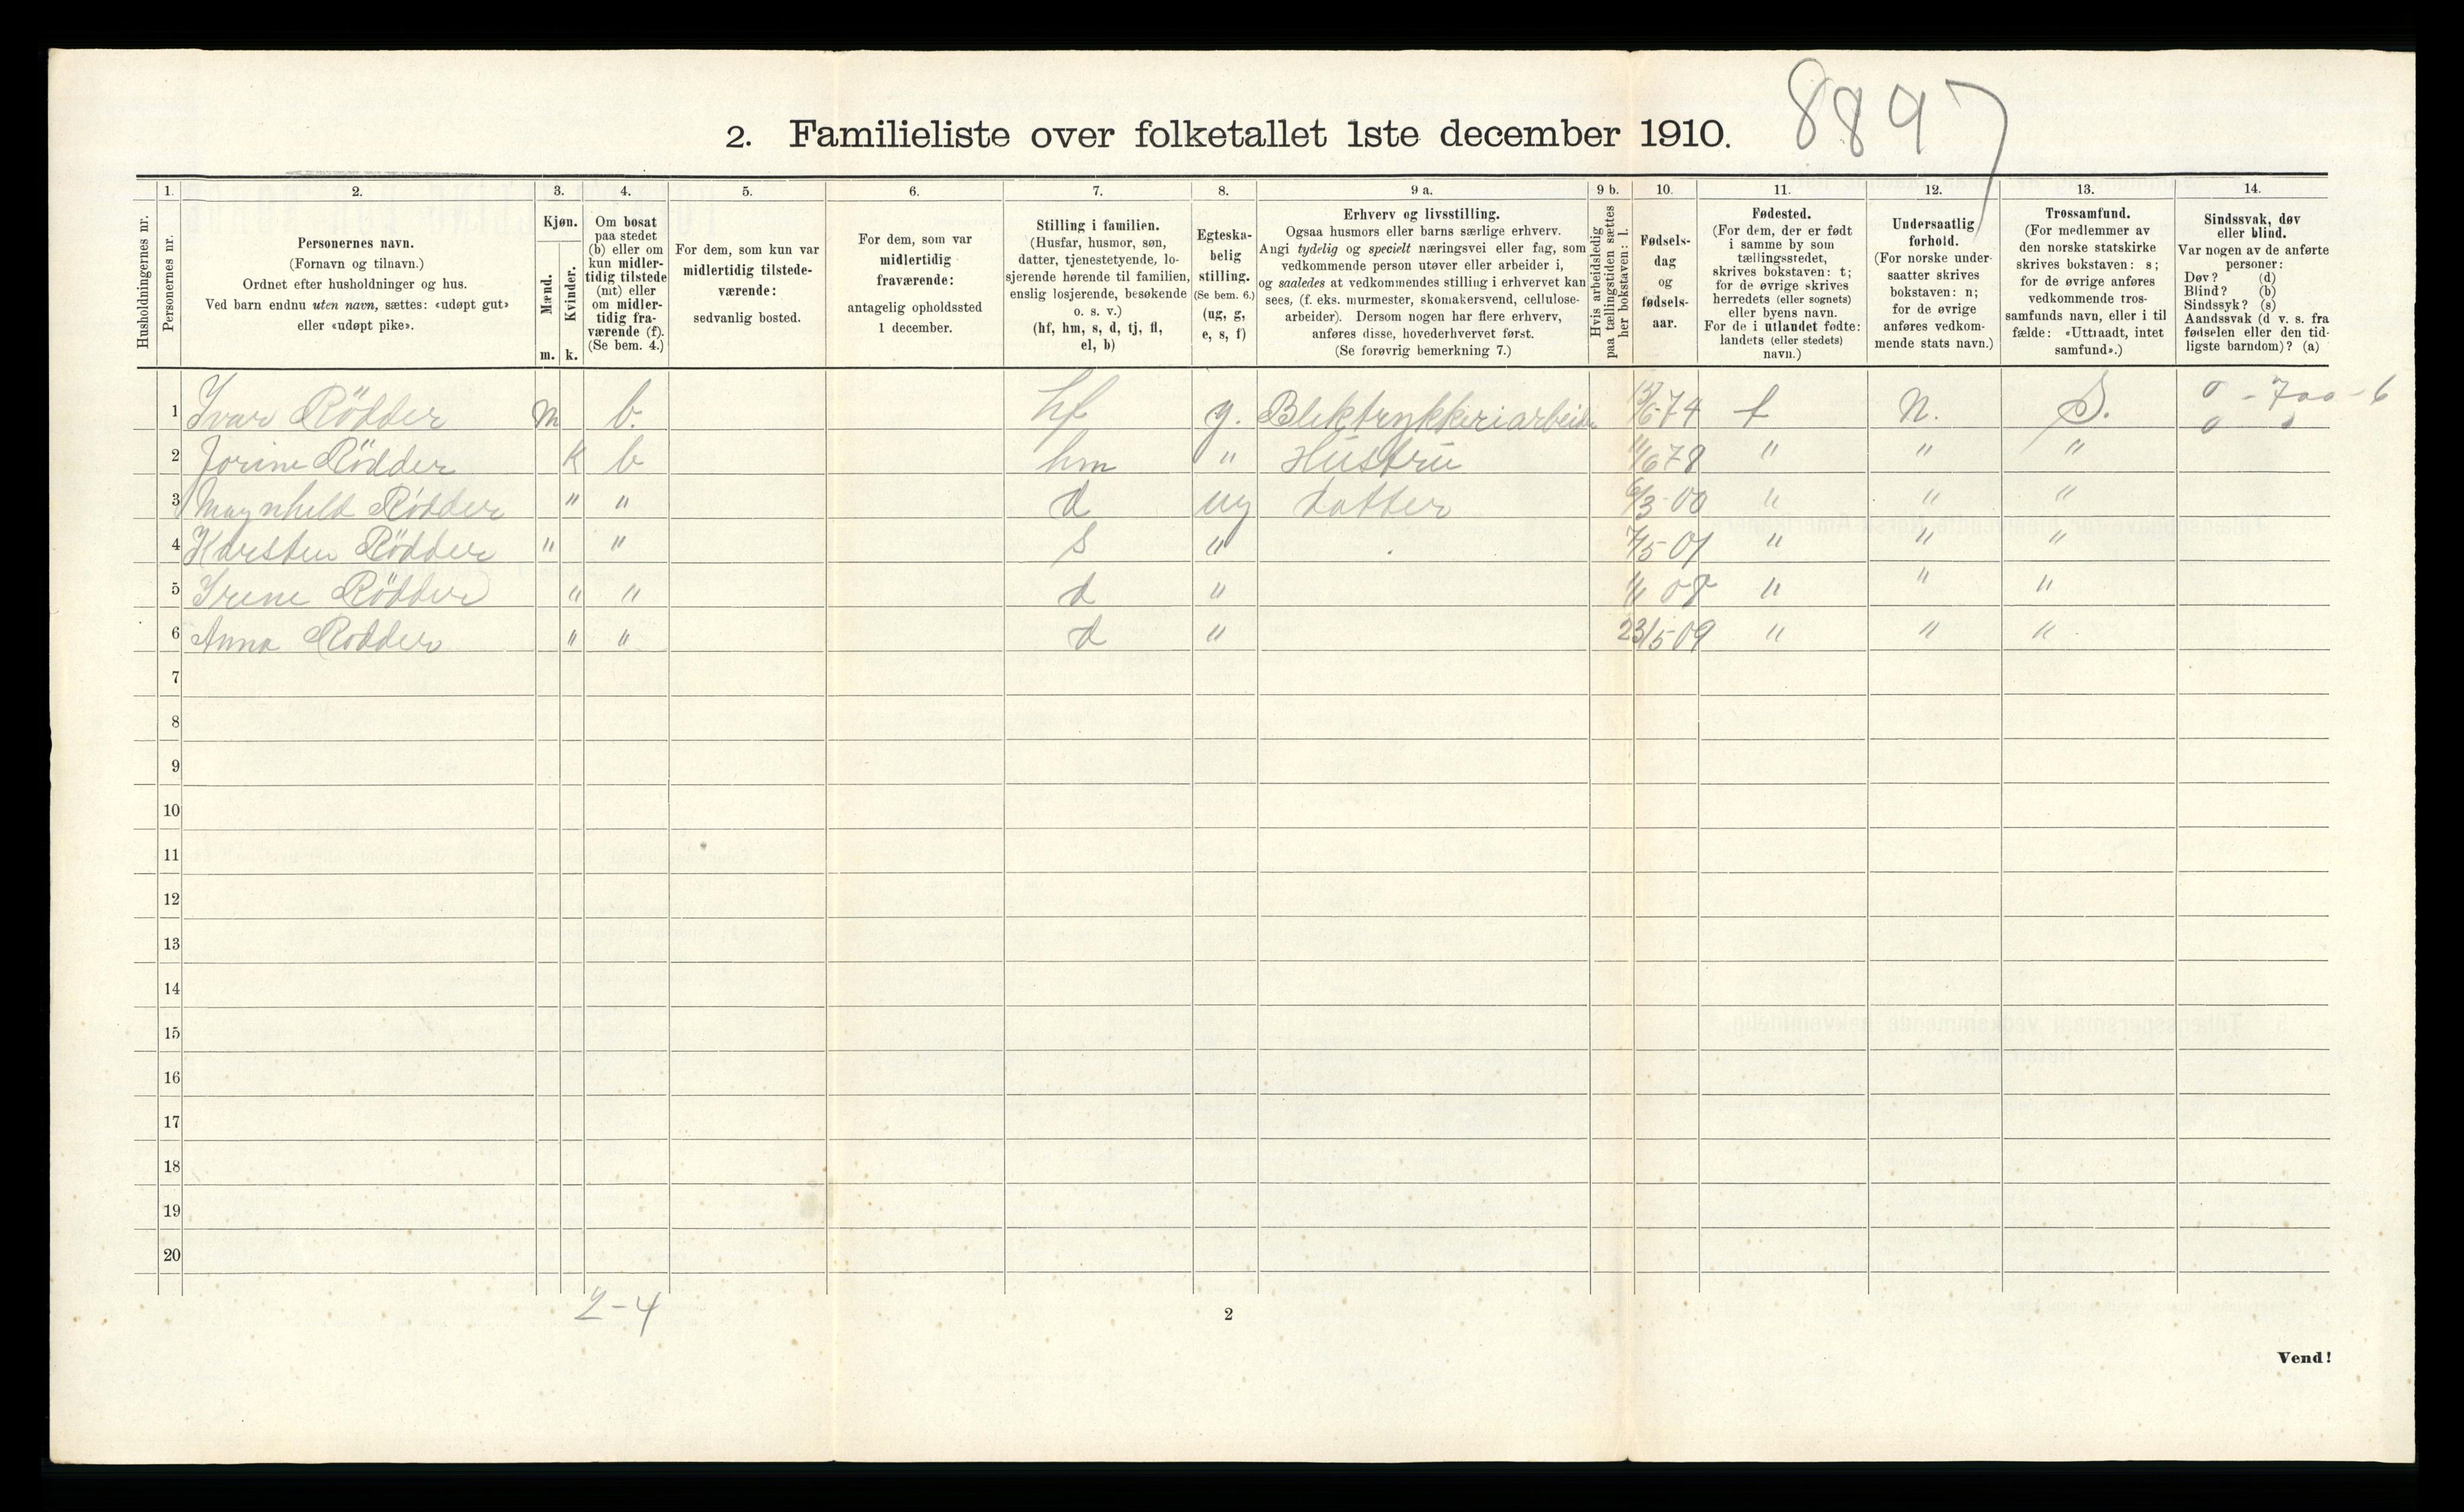 8897
2. Familieliste over folketallet 1ste december 1910.
Husholdningernes nr.
1.
Personernes nr.
2.
Personernes navn.
(Fornavn og tilnavn.)
Ordnet efter husholdninger og hus.
Ved barn endnu uten navn, sættes: «udøpt gut»
eller «udøpt pike».
3.
Kjøn.
Mænd.
m.
Kvinder.
k.
4.
Om bosat
paa stedet
(b) eller om
kun midler-
tidig tilstede
(mt) eller
om midler-
tidig fra-
værende (f).
(Se bem. 4.)
5.
For dem, som kun var
midlertidig tilstede-
værende:
sedvanlig bosted.
6.
For dem, som var
midlertidig
fraværende:
antagelig opholdssted
1 december.
7.
Stilling i familien.
(Husfar, husmor, søn,
datter, tjenestetyende, lo-
sjerende hørende til familien,
enslig losjerende, besøkende
o. s. v.)
(hf, hm, s, d, tj, fl,
el, b)
8.
Egteska-
belig
stilling.
(Se bem. 6.)
(ug, g,
e, s, f)
9 a.
Erhverv og livsstilling.
Ogsaa husmors eller barns særlige erhverv.
Angi tydelig og specielt næringsvei eller fag, som
vedkommende person utøver eller arbeider i,
og saaledes at vedkommendes stilling i erhvervet kan
sees, (f. eks. murmester, skomakersvend, cellulose-
arbeider). Dersom nogen har flere erhverv,
anføres disse, hovederhvervet først.
(Se forøvrig bemerkning 7.)
9 b.
Hvis arbeidsledig
paa tællingstiden sættes
her bokstaven: l.
10.
Fødsels-
dag
og
fødsels-
aar.
11.
Fødested.
(For dem, der er født
i samme by som
tællingsstedet,
skrives bokstaven: t;
for de øvrige skrives
herredets (eller sognets)
eller byens navn.
For de i utlandet fødte:
landets (eller stedets)
navn.)
12.
Undersaatlig
forhold.
(For norske under-
saatter skrives
bokstaven: n;
for de øvrige
anføres vedkom-
mende stats navn.)
13.
Trossamfund.
(For medlemmer av
den norske statskirke
skrives bokstaven: s;
for de øvrige anføres
vedkommende tros-
samfunds navn, eller i til
fælde: «Uttraadt, intet
samfund».)
14.
Sindssvak, døv
eller blind.
Var nogen av de anførte
personer:
Døv? (d)
Blind? (b)
Sindssyk? (s)
Aandssvak (d v. s. fra
fødselen eller den tid-
ligste barndom)? (a)
1 Ivar Rödder m b. hf g. Bliktrykkeriarbeider /6-74 t n. S. 0 - 700 - 6
2 Jorine Rödder k b hm " Hustru /6 78 " " "
3 Magnhild Rödder " " d ug datter 6/3-00 " " "
4 Karsten Rödder " " s " 7/5-01 " " "
5 Irene Rödder " " d " 08 " " "
6 Anna Rodder " " d " 23/5-09 " " "
7
8
9
10
11
12
13
14
15
16
17
18
19
20
2-4
2
Vend!